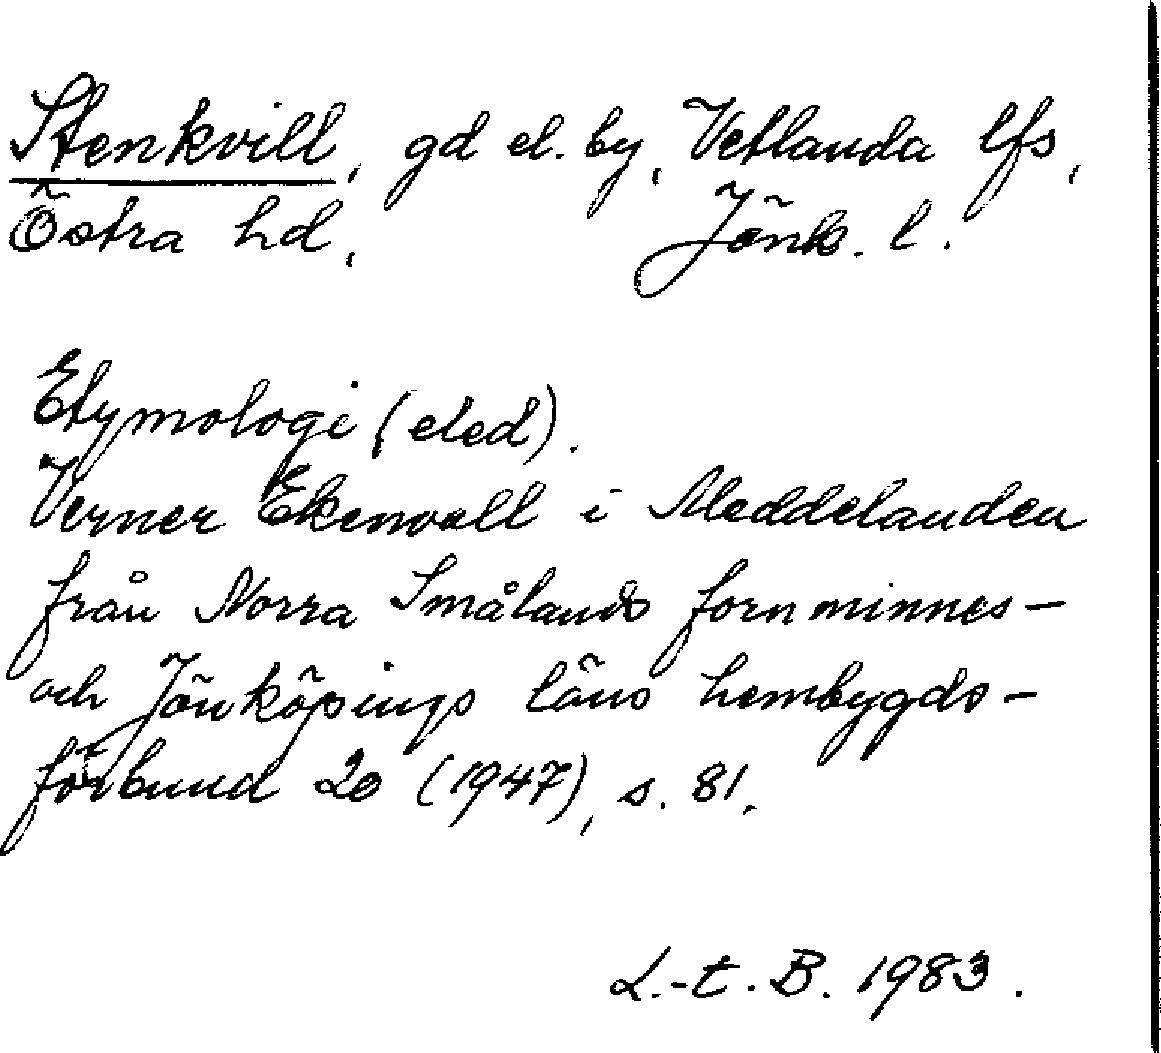 Stenkvill, gd el. by, Vetlanda lfs,
Östra hd, Jönk. l.
Etymologi (eled).
Verner Ekenvall i Meddelanden
från Norra Smålands fornminnes-
och Jönköpings läns hembygds-
förbund 20 (1947), s. 81.
L.-t. B. 1983.